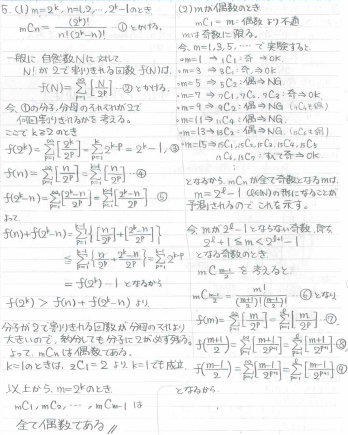 5. (1) m=2^k, n=1,2,…,2^k-1のとき
mCn = (2^k)! / n!(2^k-n)! …① とかける。
一般に自然数Nに対して、
N!が2で割りきれる回数f(N)は、
f(N)=Σ[p=1→∞][N/2^p] …② とかける。
今、①の分子、分母のそれぞれが2で
何回割りきれるかを考える。
ここでk≧2のとき
f(2^k)=Σ[p=1→∞][2^k/2^p]=Σ[p=1→k]2^(k-p)=2^k-1 …③
f(n)=Σ[p=1→∞][n/2^p]=Σ[p=1→k-1][n/2^p] …④
f(2^k-n)=Σ[p=1→∞][(2^k-n)/2^p]=Σ[p=1→k-1][(2^k-n)/2^p] …⑤
よって
f(n)+f(2^k-n)=Σ[p=1→k-1]{[n/2^p]+[(2^k-n)/2^p]}
≦Σ[p=1→k-1]{n/2^p+(2^k-n)/2^p}=Σ[p=1→k-1]2^(k-p)
=f(2^k)-1 となるから
f(2^k)>f(n)+f(2^k-n) より
分子が2で割りきれる回数が分母のそれより
大きいので、約分しても分子に2が必ず残る。
よって、mCnは偶数である。
k=1のときは、2C1=2より、k=1でも成立。
以上から、m=2^kのとき
mC1, mC2, …, mCm-1は
全て偶数である//
(2) mが偶数のとき
mC1=m:偶数より不適
mは奇数に限る。
今、m=1,3,5,…で実験すると
•m=1 → 1C1:奇→OK
•m=3 → 3C1:奇→OK
•m=5 → 5C2:偶→NG
•m=7 → 7C1, 7C2, 7C3:奇→OK
•m=9 → 9C2:偶→NG
•m=11→11C4:偶→NG
•m=13→13C2:偶→NG
•m=15→15C1,15C2,15C3,15C4,15C5
15C6,15C7:すべて奇→OK
⋮
となるから、mCnが全て奇数となるmは、
m=2^ℓ-1 (ℓ∈N)の形になることが
予測されるので、これを示す。
今、mが2^ℓ-1とならない奇数、即ち
2^ℓ+1≦m<2^(ℓ+1)-1
となる奇数のとき
mC(m-1)/2 を考えると
mC(m-1)/2 = m! / ((m+1)/2)!((m-1)/2)! …⑥ となり、
f(m)=Σ[p=1→∞][m/2^p]=Σ[p=1→ℓ][m/2^p] …⑦
f((m+1)/2)=Σ[p=1→∞][(m+1)/2^(p+1)]=Σ[p=1→ℓ-1][(m+1)/2^(p+1)] …⑧
f((m-1)/2)=Σ[p=1→∞][(m-1)/2^(p+1)]=Σ[p=1→ℓ-1][(m-1)/2^(p+1)] …⑨
となるから